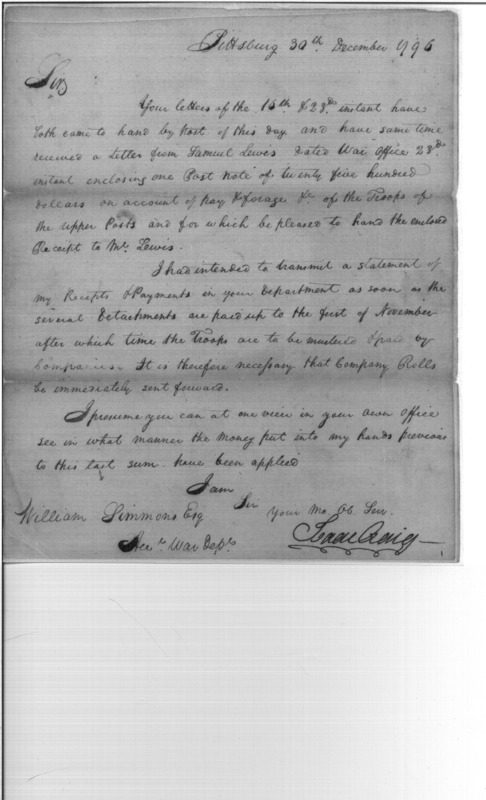 Pittsburg 30th December 1796
Sir
Your letters of the 16th & 23d. instant have
both came to hand by Post of this day and have same time
received a Letter from Samuel Lewis dated War office 23d
instant enclosing one Post Note of twenty five hundred
dollars on account of pay & forage &c of the Troops of
the upper Posts and for which be pleased to hand the enclosed
Receipt to Mr. Lewis.
I had intended to transmit a statement of
my Receipts & Payments in your Department as soon as the
several Detachments are paid up to the first of November
after which time the Troops are to be mustered & paid by
Companies. It is therefore necessary that Company Rolls
be immediately sent forward.
I presume you can at one view in your own office
see in what manner the money put into my hands previous
to this last sum have been applied
I am
Sir
William Simmons Esq
Your Mo. Ob Serv.
Acct. War Dept.
Isaac Craig